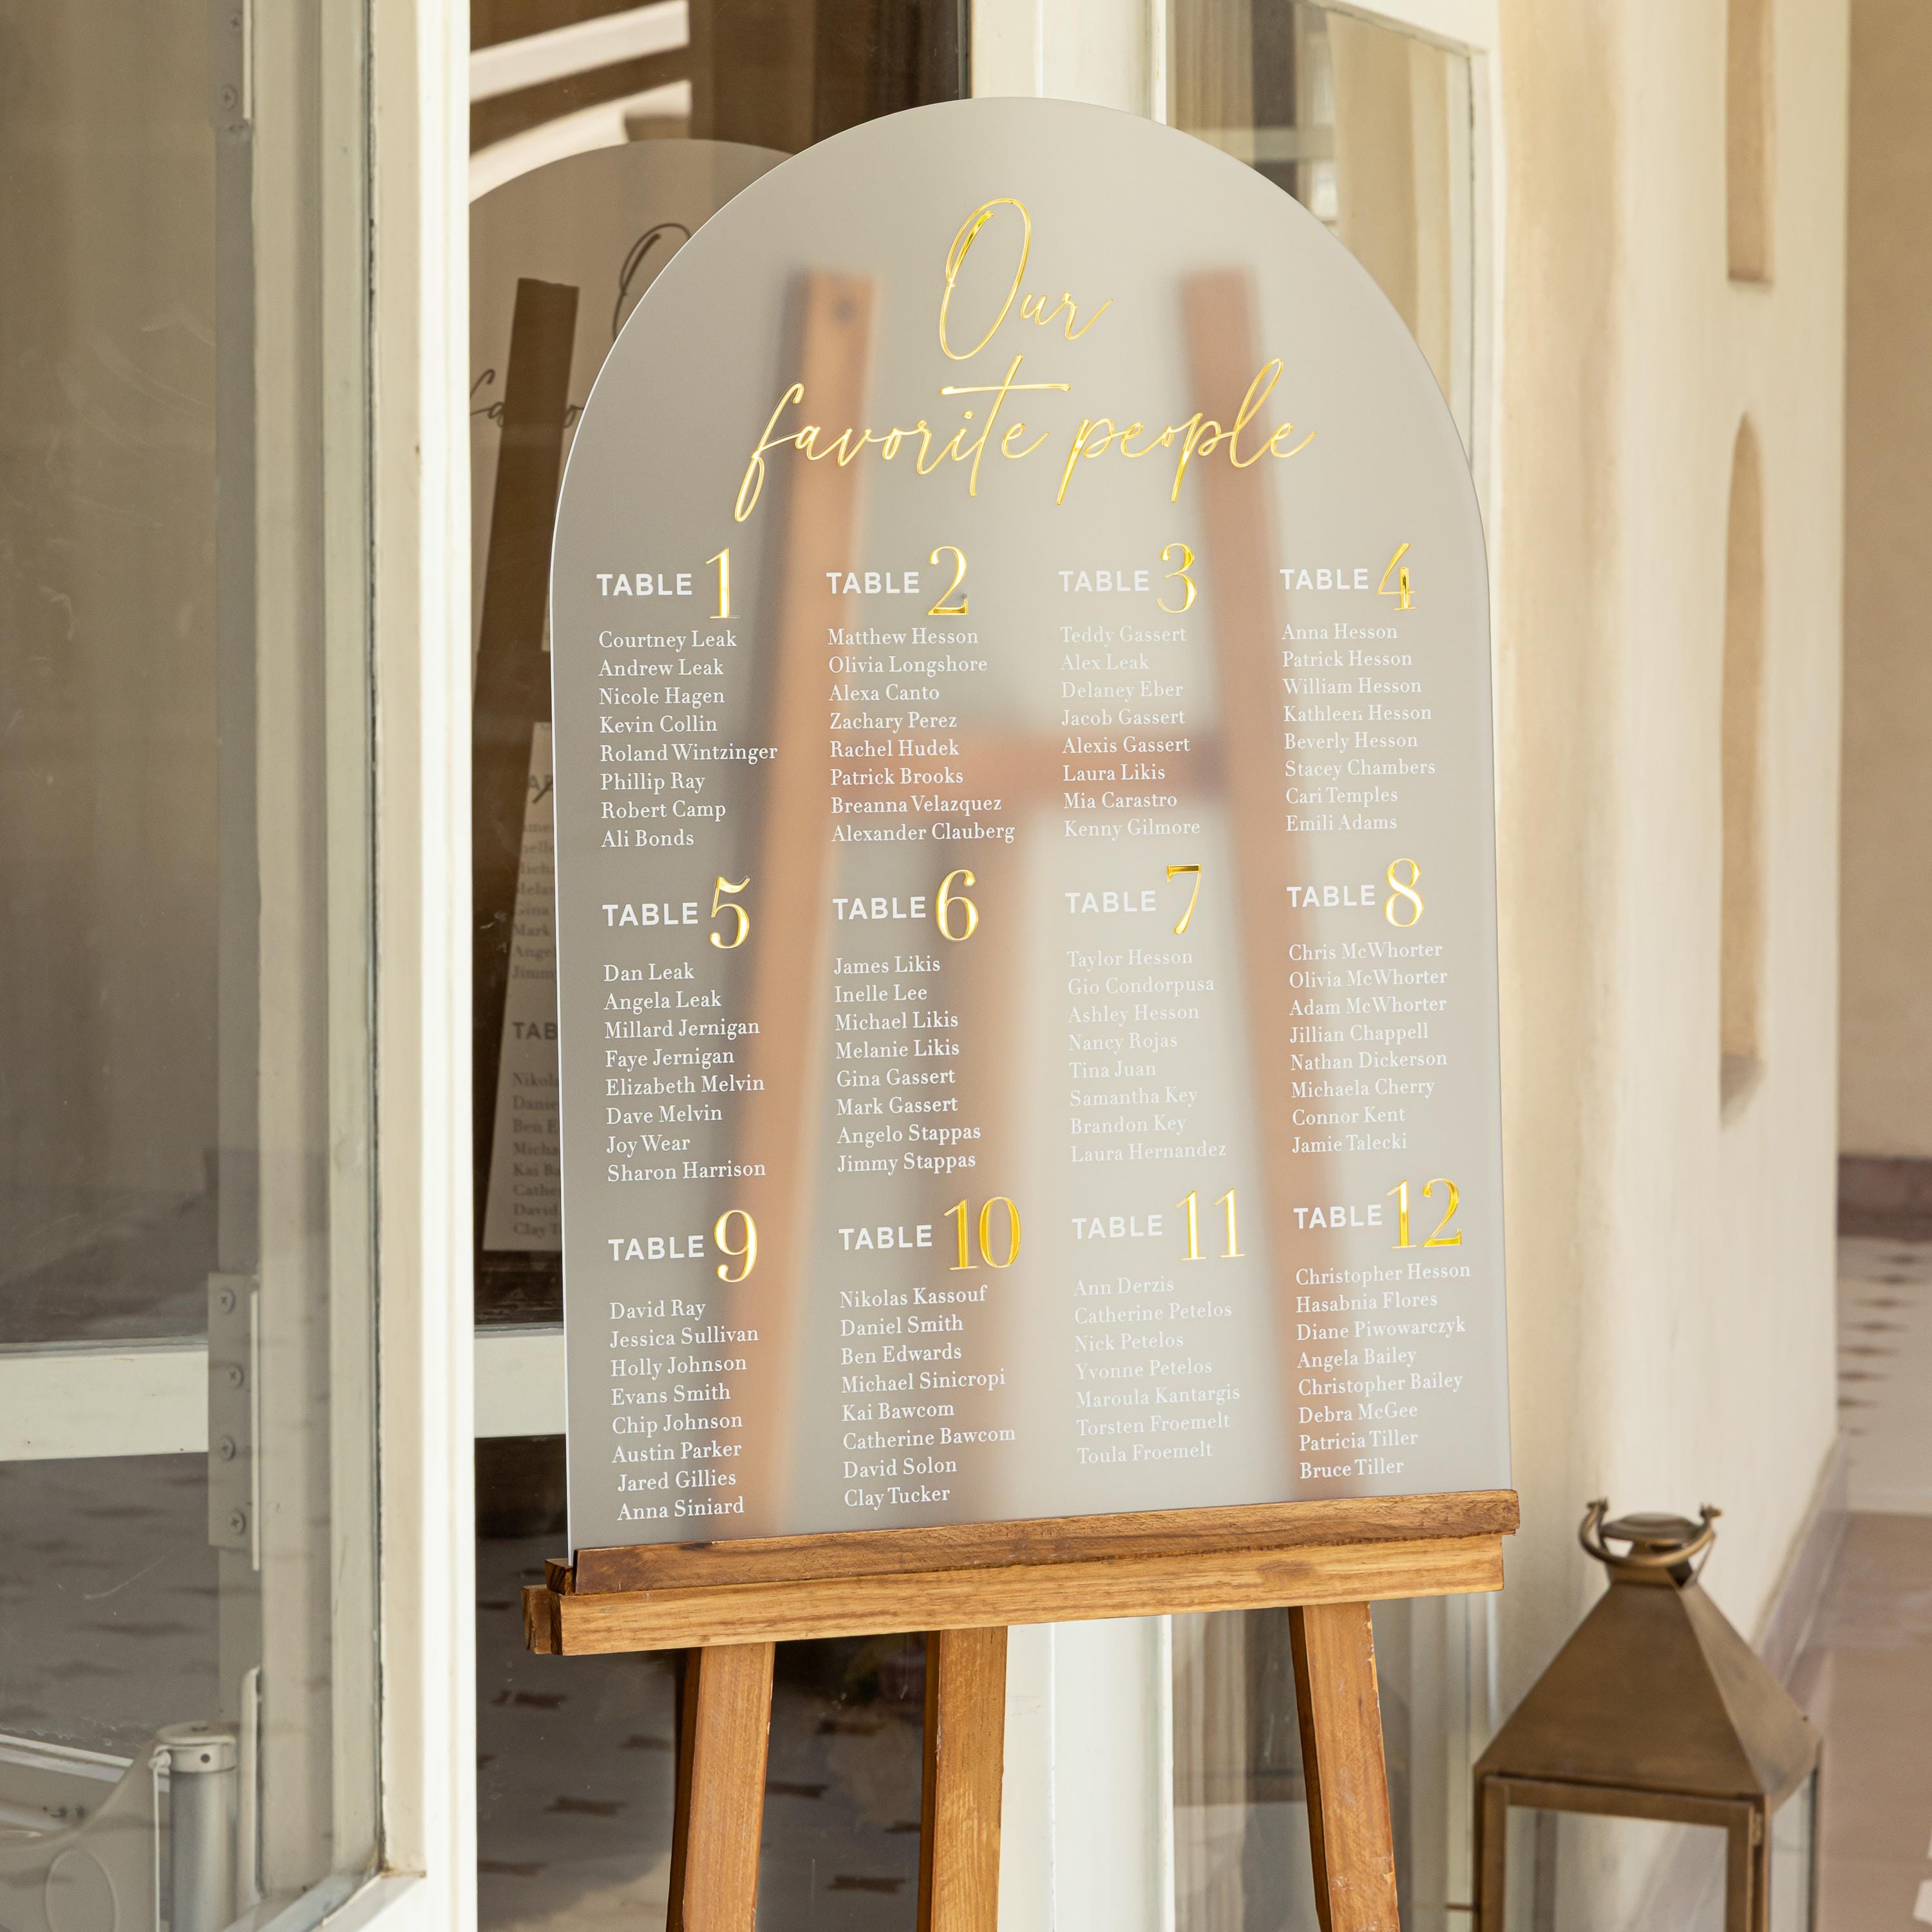 Our
favorite people
TABLE 1
Courtney Leak
Andrew Leak
Nicole Hagen
Kevin Collin
Roland Wintzinger
Phillip Ray
Robert Camp
Ali Bonds
TABLE 2
Matthew Hesson
Olivia Longshore
Alexa Canto
Zachary Perez
Rachel Hudek
Patrick Brooks
Breanna Velazquez
Alexander Clauberg
TABLE 3
Teddy Gassert
Alex Leak
Delaney Eber
Jacob Gassert
Alexis Gassert
Laura Likis
Mia Carastro
Kenny Gilmore
TABLE 4
Anna Hesson
Patrick Hesson
William Hesson
Kathleen Hesson
Beverly Hesson
Stacey Chambers
Cari Temples
Emili Adams
TABLE 5
Dan Leak
Angela Leak
Millard Jernigan
Faye Jernigan
Elizabeth Melvin
Dave Melvin
Joy Wear
Sharon Harrison
TABLE 6
James Likis
Inelle Lee
Michael Likis
Melanie Likis
Gina Gassert
Mark Gassert
Angelo Stappas
Jimmy Stappas
TABLE 7
Taylor Hesson
Gio Condorpusa
Ashley Hesson
Nancy Rojas
Tina Juan
Samantha Key
Brandon Key
Laura Hernandez
TABLE 8
Chris McWhorter
Olivia McWhorter
Adam McWhorter
Jillian Chappell
Nathan Dickerson
Michaela Cherry
Connor Kent
Jamie Talecki
TABLE 9
David Ray
Jessica Sullivan
Holly Johnson
Evans Smith
Chip Johnson
Austin Parker
Jared Gillies
Anna Siniard
TABLE 10
Nikolas Kassouf
Daniel Smith
Ben Edwards
Michael Sinicropi
Kai Bawcom
Catherine Bawcom
David Solon
Clay Tucker
TABLE 11
Ann Derzis
Catherine Petelos
Nick Petelos
Yvonne Petelos
Maroula Kantargis
Torsten Froemelt
Toula Froemelt
TABLE 12
Christopher Hesson
Hasabnia Flores
Diane Piwowarczyk
Angela Bailey
Christopher Bailey
Debra McGee
Patricia Tiller
Bruce Tiller